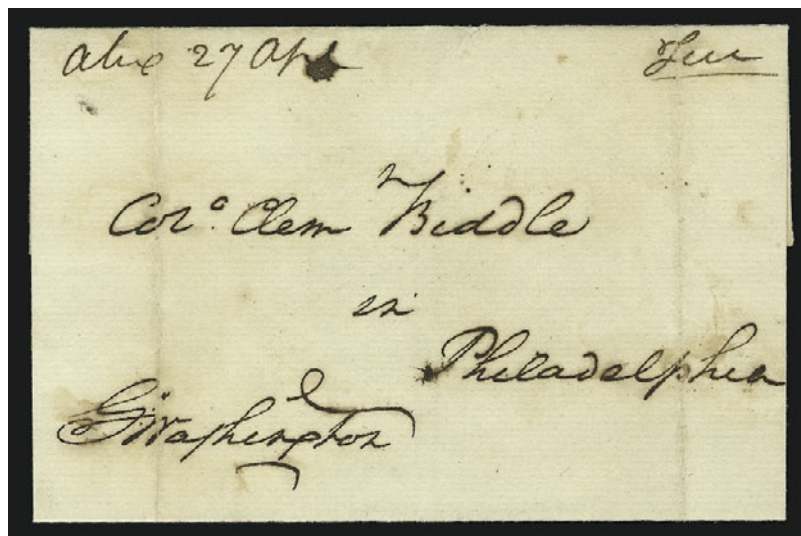 Alex 27 Apl Free
Colo. Clem Biddle
in
Philadelphia
G Washington